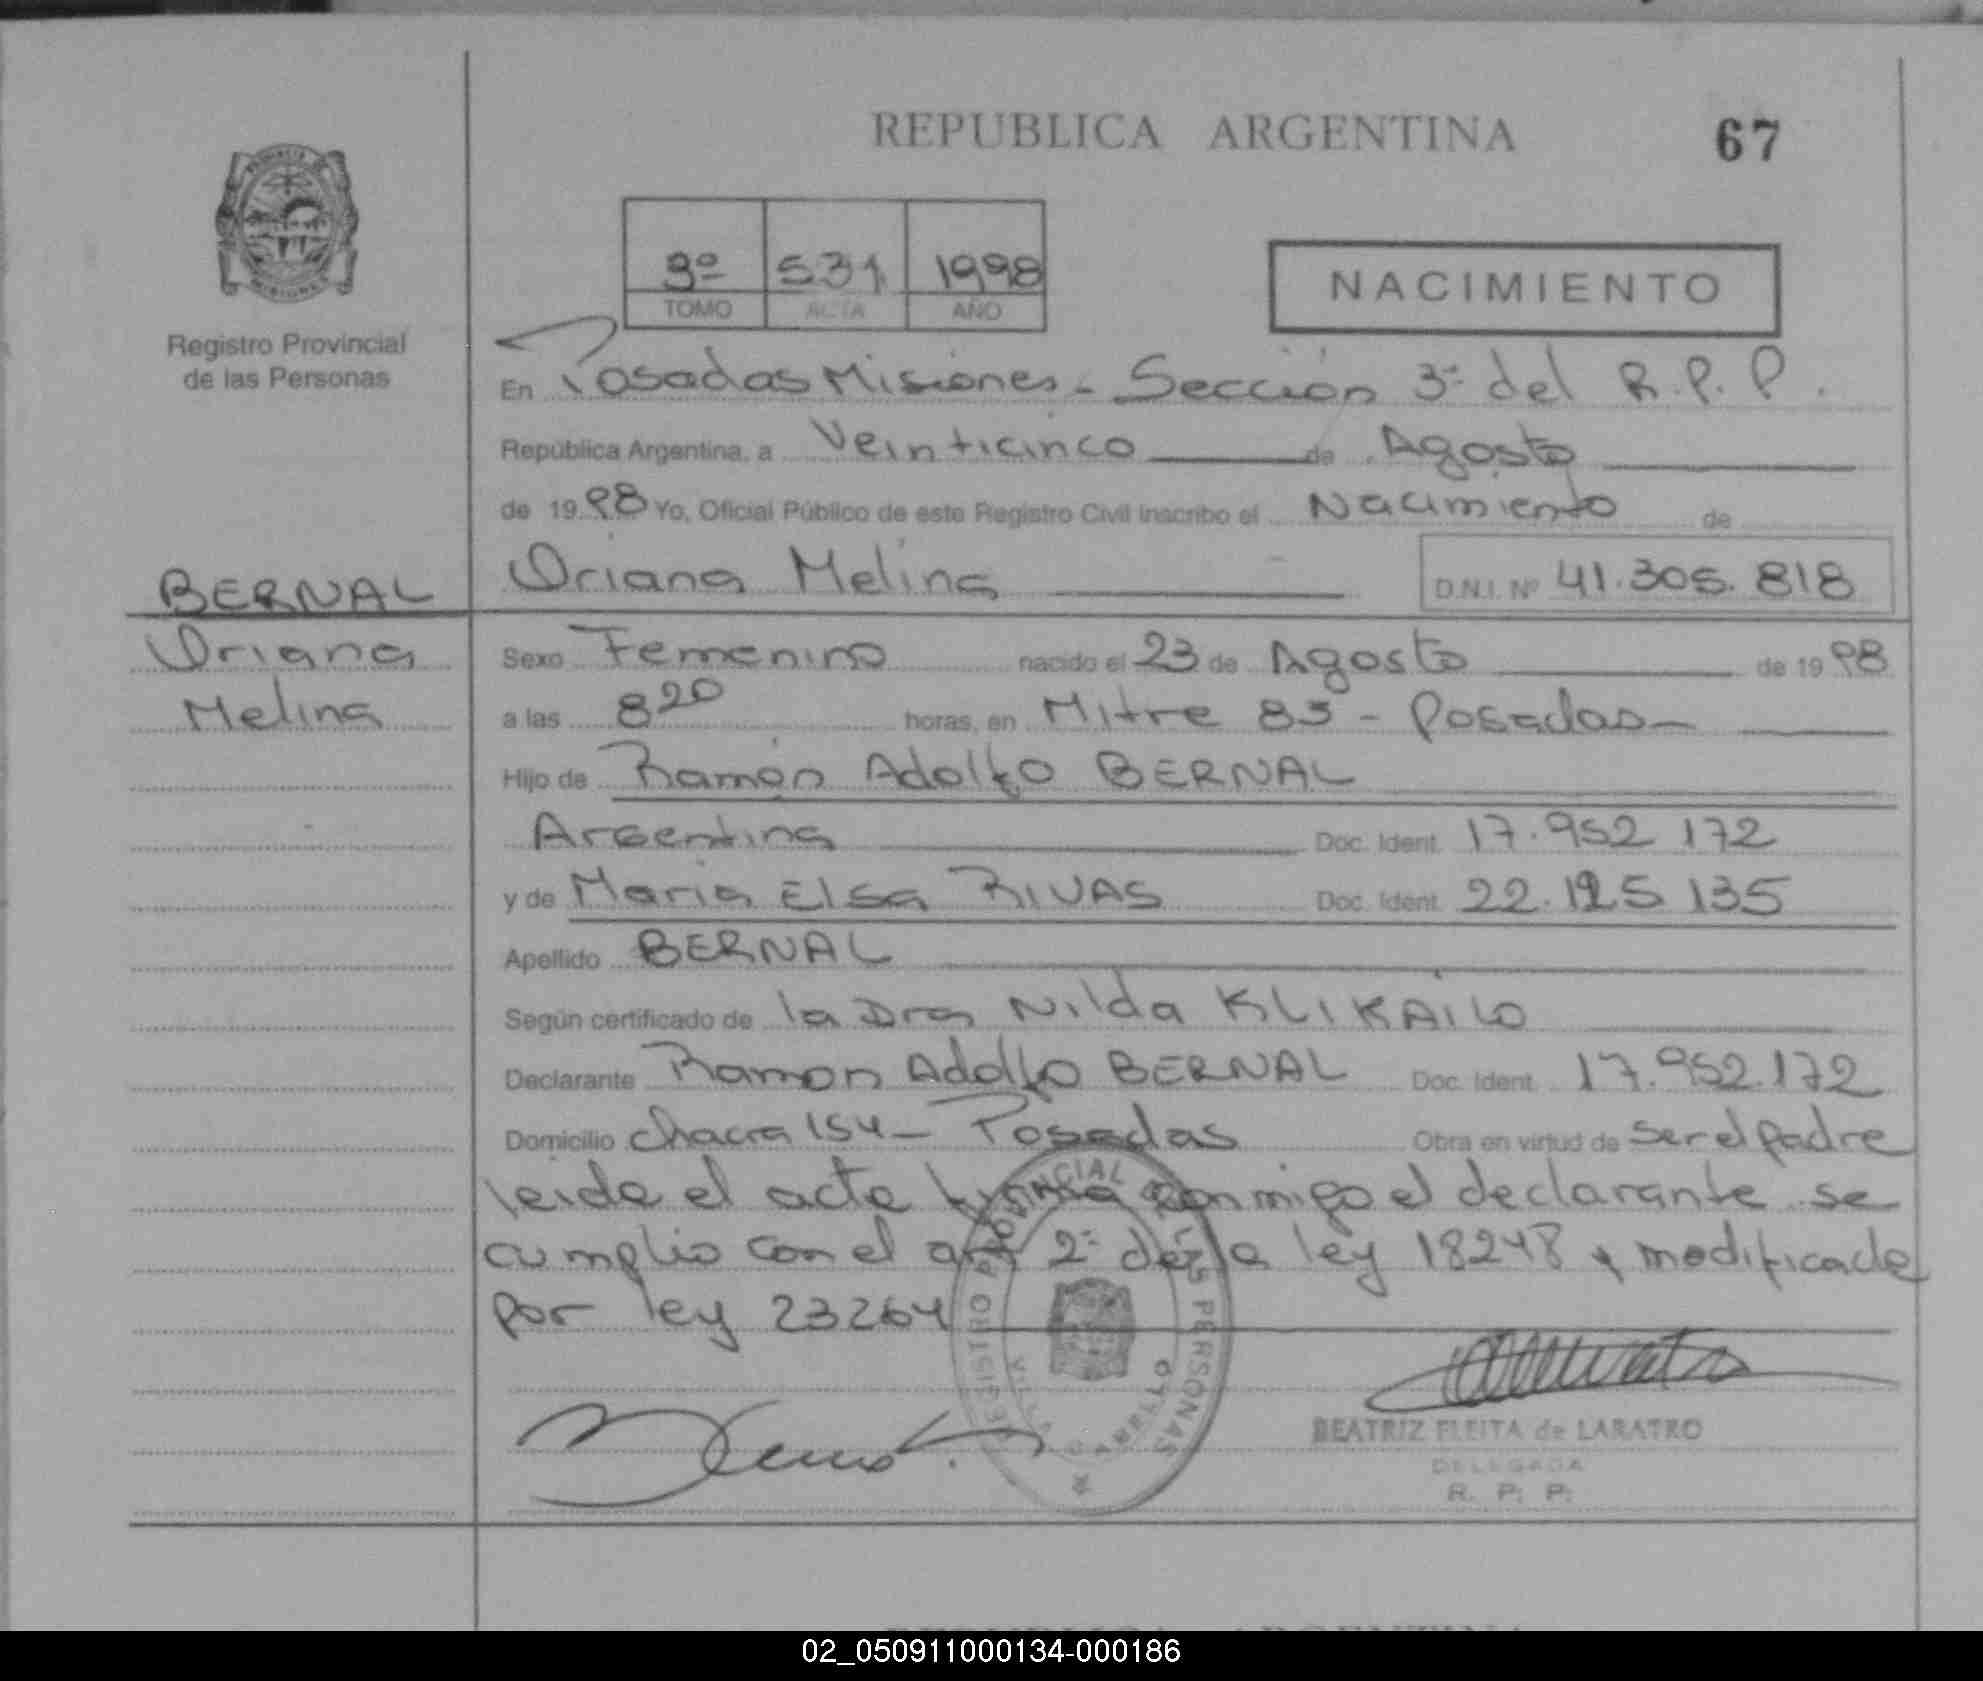 REPUBLICA ARGENTINA
67
3º 531 1998
TOMO ACTA AÑO
NACIMIENTO
PROVINCIA DE
MISIONES
Registro Provincial
de las Personas
En Posadas Misiones - Sección 3ª del R.P.P.
República Argentina, a Veinticinco de Agosto
de 1998 Yo, Oficial Público de este Registro Civil inscribo el Nacimiento de
BERNAL
Oriana
Melina
Oriana Melina
D.N.I. Nº 41.305.818
Sexo Femenino nacido el 23 de Agosto de 1998
a las 8 20 horas, en Mitre 83 - Posadas
Hijo de Ramón Adolfo BERNAL
Argentina Doc. Ident. 17.952 172
y de Maria Elsa RIVAS Doc. Ident. 22.125 135
Apellido BERNAL
Según certificado de la Dra Nilda KLIKAILO
Declarante Ramon Adolfo BERNAL Doc. Ident. 17.952.172
Domicilio chacra 154 - Posadas Obra en virtud de ser el padre
leida el acta firma conmigo el declarante se
cumplio con el art 2º de la ley 18248 y modificada
por ley 23264
REGISTRO PROVINCIAL DE LAS PERSONAS
VILLA CABELLO
BEATRIZ FLEITA de LARATRO
DELEGADA
R. P. P.
REPUBLICA ARGENTINA
02_050911000134-000186